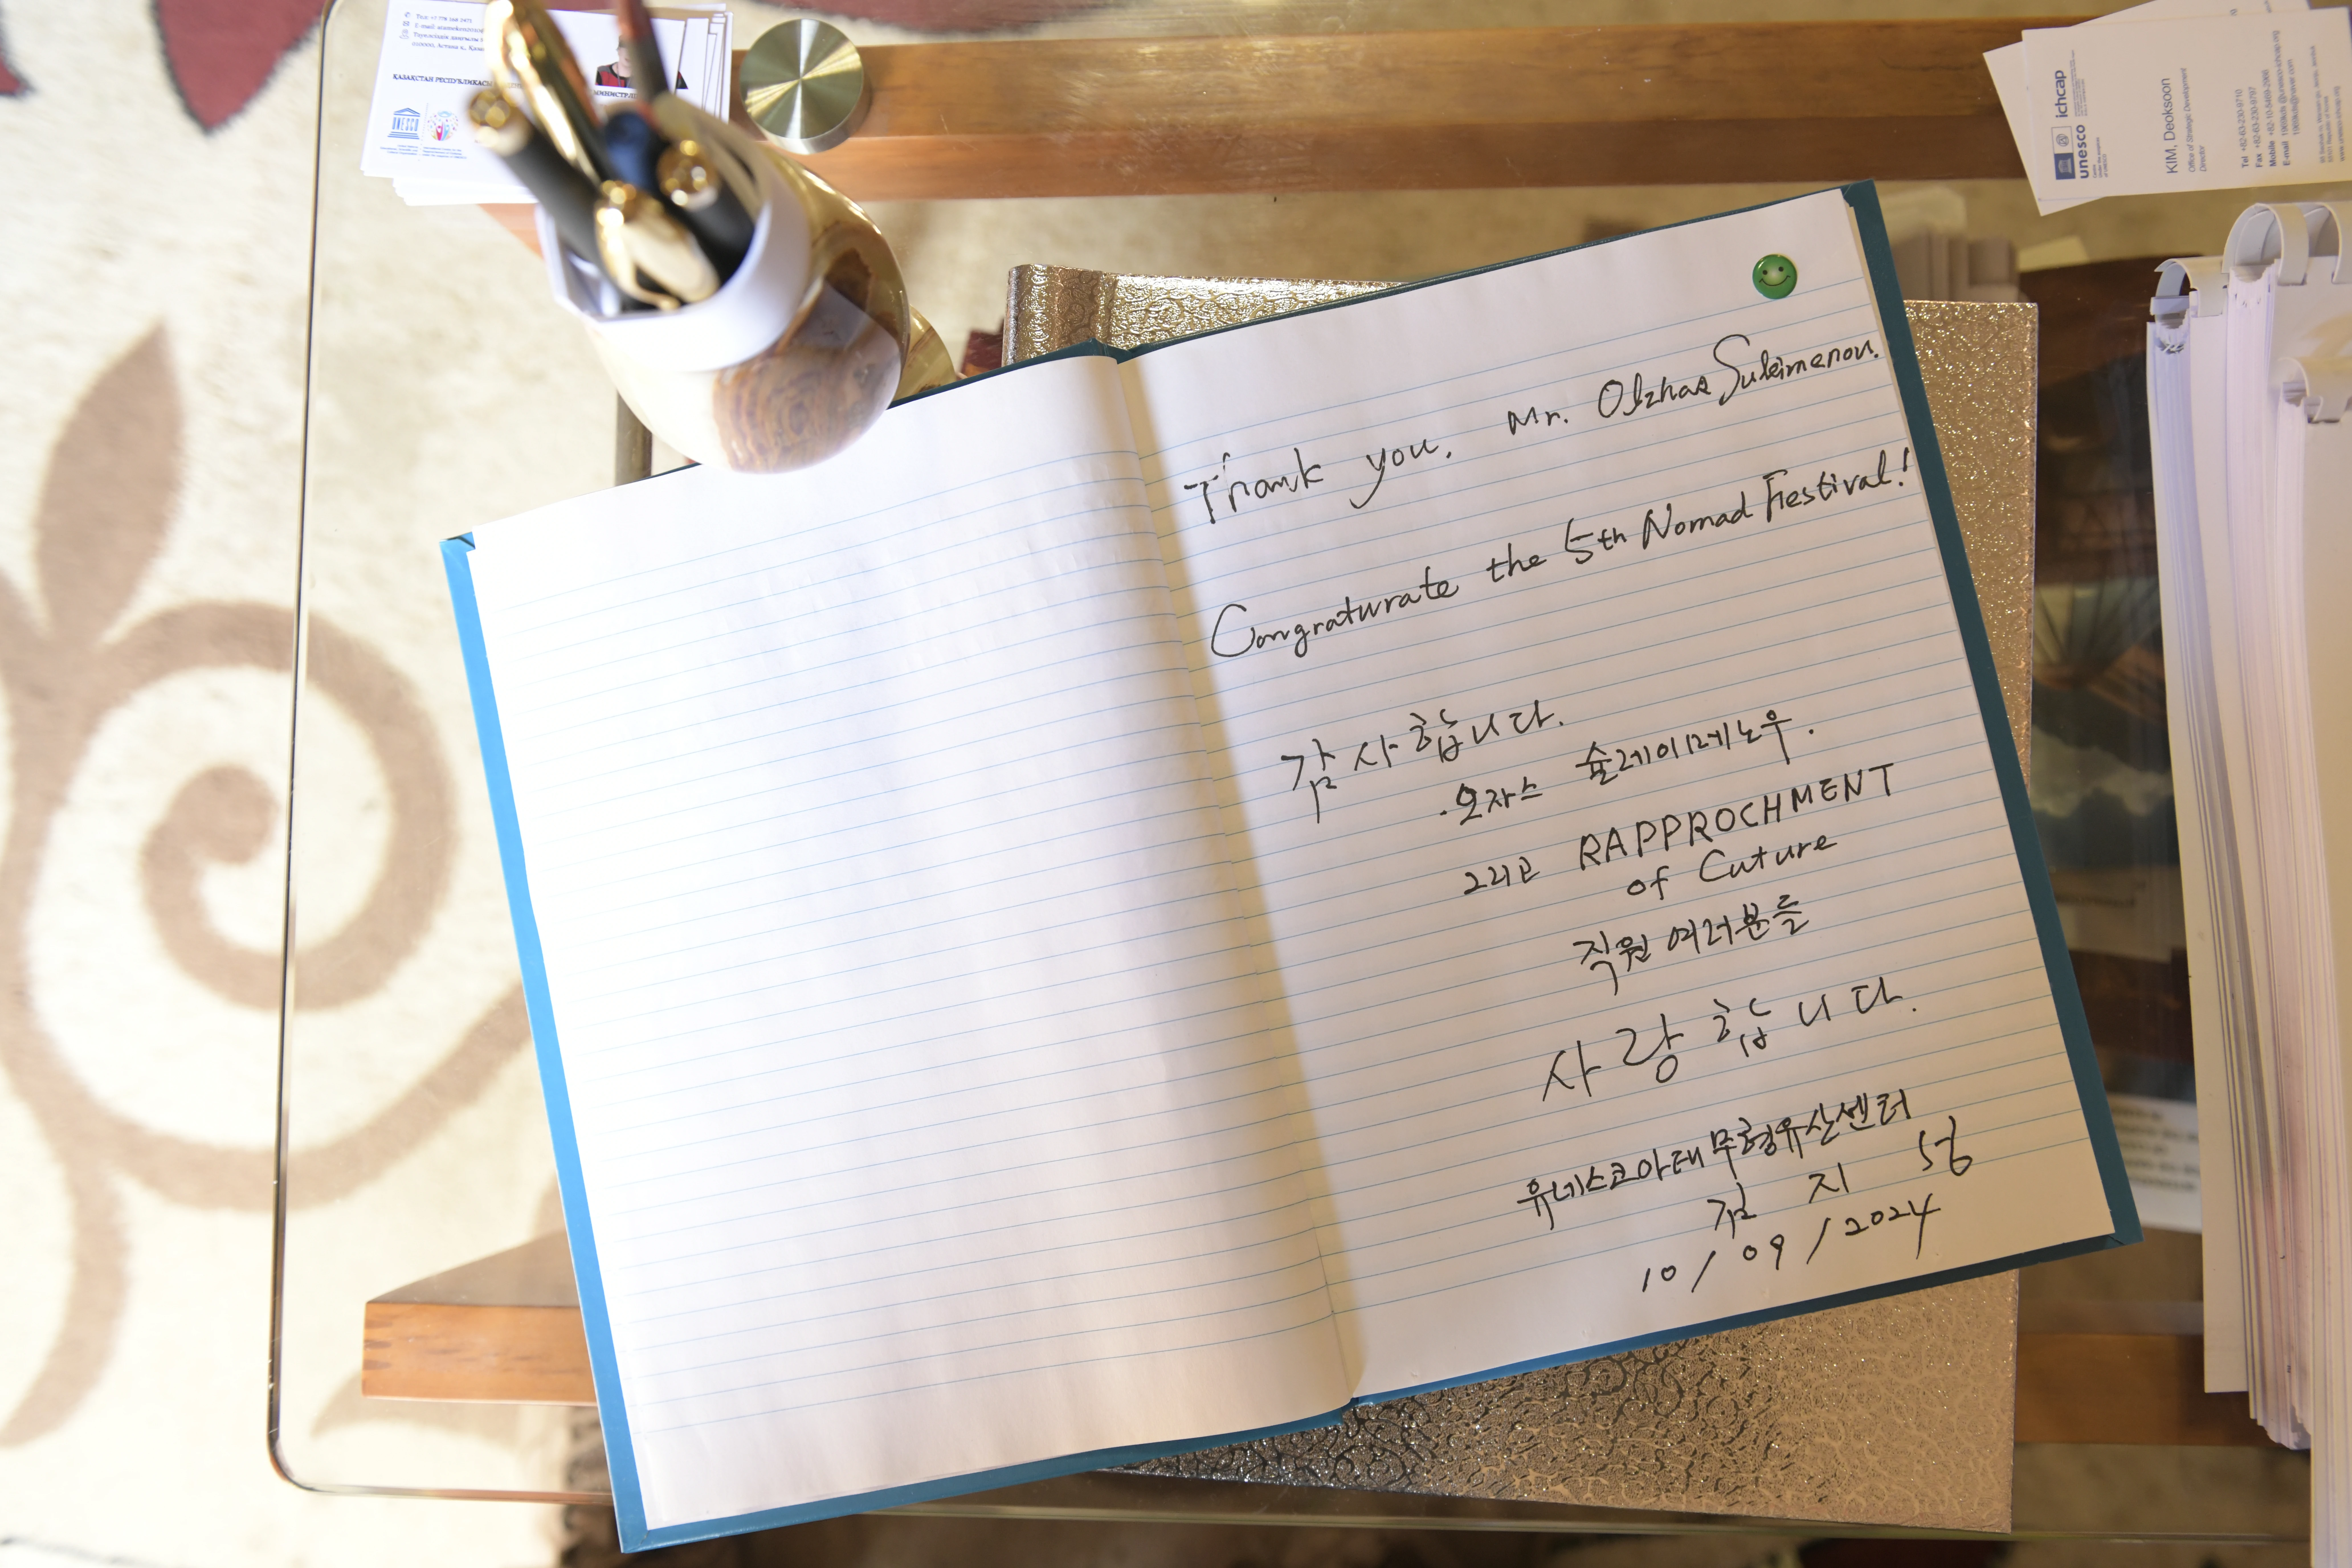 Thank you, Mr. Olzhas Suleimenov.
Congraturate the 5th Nomad Festival!
감사합니다.
·오자스 슐레이메노우.
그리고 RAPPROCHMENT
of Cuture
직원 여러분들
사랑합니다.
유네스코아태무형유산센터
김 지 성
10/09/2024
ҚАЗАҚСТАН РЕСПУБЛИКАСЫ
UNESCO
unesco
ichcap
KIM, Deoksoon
Office of Strategic Development
Director
Tel +82-63-230-9710
Fax +82-63-230-9797